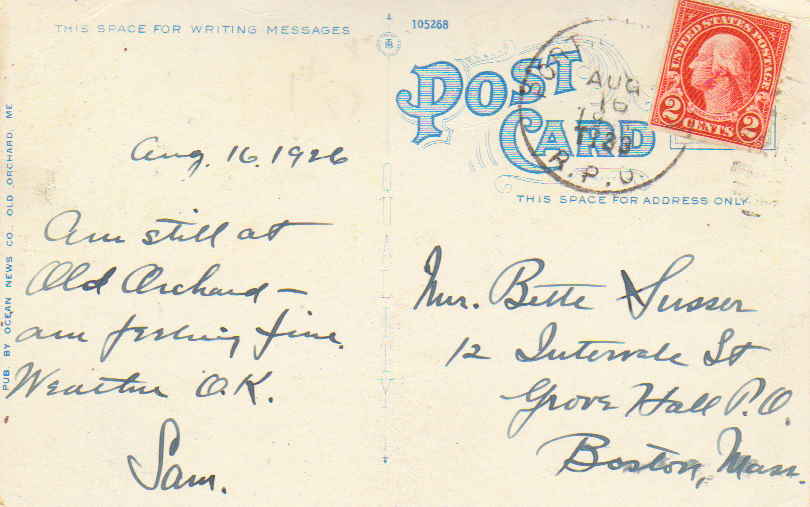 THIS SPACE FOR WRITING MESSAGES
105268
POST
CARD
AUG
16
R.P.O.
UNITED STATES POSTAGE
2 CENTS 2
THIS SPACE FOR ADDRESS ONLY
PUB. BY OCEAN NEWS CO. OLD ORCHARD, ME
Aug. 16. 1926
Am still at
Old Orchard —
am feeling fine.
Weather O.K.
Sam.
Mr. Bette Susser
12 Intervale St
Grove Hall P.O.
Boston, Mass.